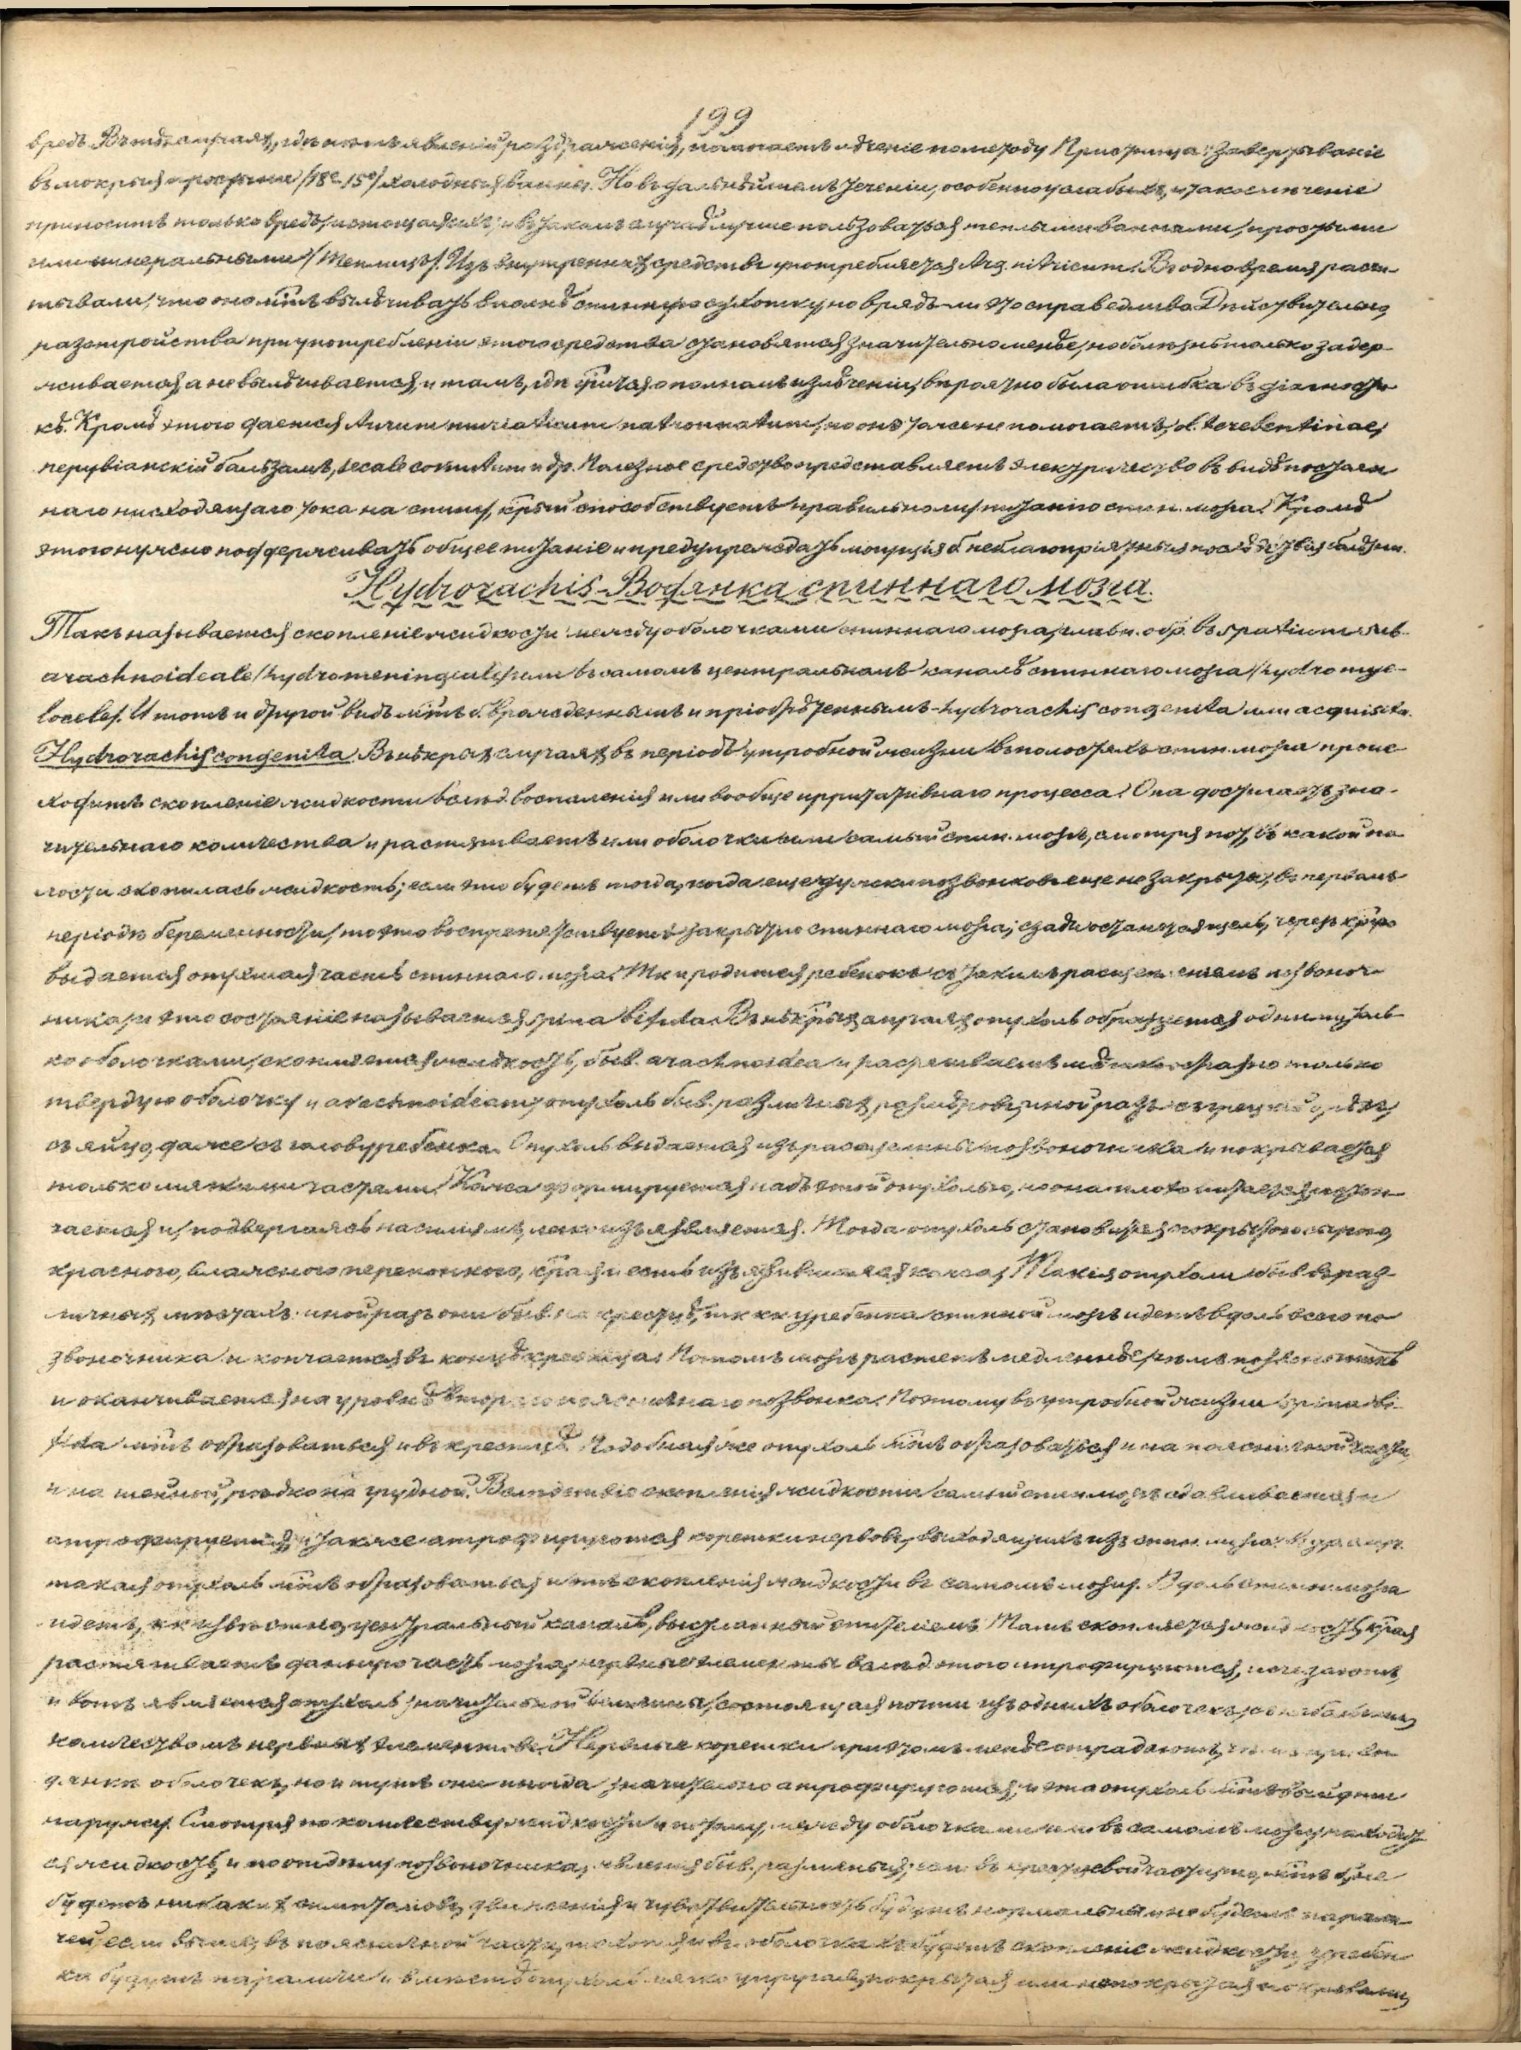 199
вредъ. Въ тѣхъ случаяхъ, гдѣ нѣтъ явленій раздраженія, помогаетъ лѣченіе по методу Присница: завертываніе
въ мокрыя простыни /18°-15°/ холодныя ванны. Но въ дальнѣйшемъ теченіи, особенно у слабыхъ, и такое лѣченіе
приноситъ только вредъ, истощая ихъ; въ такомъ случаѣ лучше пользоваться теплыми ваннами, простыми
или минеральными /Теплицъ/. Изъ внутреннихъ средствъ употребляется Arg. nitricum. Въ одно время расчи-
тывали, что оно мѣтъ вылѣчивать вполнѣ спинную сухотку, но врядъ-ли это справедливо. Дѣйствительно,
разстройства при употребленіи этого средства становятся значительно менѣе, но болѣзнь только задер-
живается, а не вылѣчивается, и тамъ, гдѣ гов-ся о полномъ излѣченіи, вѣроятно была ошибка въ діагности-
кѣ. Кромѣ этого дается Aurum muriaticum natronatum, но онъ тоже не помогаетъ, ol. terebentinae,
перувіанскій бальзамъ, secale cornutum и др. Полезное средство представляетъ электричество въ видѣ постоян-
наго нисходящаго тока на спину, крый способствуетъ правильному питанію спин. мозга. Кромѣ
этого нужно поддерживать общее питаніе и предупреждать могущія б. неблагопріятныя послѣдствія болѣзни.
Hydrorachis-Водянка спиннаго мозга.
Такъ называется скопленіе жидкости между оболочками спиннаго мозга, главн. обр. въ spatium sub-
arachnoideale /hydromeningocele/ или въ самомъ центральномъ каналѣ спиннаго мозга /hydromye-
locele/. И тотъ и другой видъ мѣтъ б. врожденнымъ и пріобрѣтеннымъ - hydrorachis congenita или acquisita.
Hydrorachis congenita. Въ нѣкрыхъ случаяхъ въ періодѣ утробной жизни въ полостяхъ спин. мозга проис-
ходитъ скопленіе жидкости вслѣд. воспаленія или вообще ирритативнаго процесса. Она достигаетъ зна-
чительнаго количества и растягиваетъ или оболочки или самый спин. мозгъ, смотря по т, въ какой по-
лости скопилась жидкость; если это будетъ тогда, когда еще дужки позвонковъ еще не закрыты, въ первомъ
періодѣ беременности, то это воспрепятствуетъ закрытію спиннаго мозга; сзади останется щель, черезъ крую
выдается опухшая часть спиннаго мозга. Тк и родится ребенокъ съ такимъ расщепленіемъ позвоноч-
ника, и это состояніе называется spina bifida. Въ нѣкрыхъ случаяхъ опухоль образуется одними толь-
ко оболочками, скопляется жидкость, быв. arachnoidea и растягиваетъ мѣшкообразно только
твердую оболочку и arachnoideam; опухоль быв. различныхъ размѣровъ, иной разъ съ грецкій орѣхъ,
съ яйцо, даже съ голову ребенка. Опухоль выдается изъ расщелины позвоночника и покрывается
только мягкими частями. Кожа формируется надъ этой опухолью, но она плохо питается, истон-
чается и, подвергаясь насиліямъ, легко изъязвляется. Тогда опухоль становится покрытою сырою,
красною, влажною перепонкою, края и есть изъязвившаяся кожа. Такія опухоли быв. въ раз-
личныхъ мѣстахъ: иной разъ они быв. на крестцѣ, тк кк у ребенка спинной мозгъ идетъ вдоль всего по-
звоночника и кончается въ концѣ крестца. Потомъ мозгъ растетъ медленнѣе, чѣмъ позвоночникъ
и оканчивается на уровнѣ втораго поясничнаго позвонка. Поэтому въ утробной жизни spina bi-
fida мѣтъ образоваться и въ крестцѣ. Подобная же опухоль мѣтъ образоваться и на поясничной части,
и на шейной, рѣдко на грудной. Вслѣдствіе скопленія жидкости самый спин. мозгъ сдавливается и
атрофируется, также атрофируются корешки нервовъ, выходящихъ изъ спин. мозга.
такая опухоль мѣтъ образоваться и отъ скопленія жидкости въ самомъ мозгу. Вдоль спин. мозга
идетъ, кк извѣстно, центральный каналъ, выстланный эпителіемъ. Тамъ скопляется жидкость, края
растягиваетъ данную часть мозга, нервные элементы вслѣд. этого атрофируются, исчезаютъ,
и вотъ является опухоль значительной величины, состоящая почти изъ однихъ оболочекъ, съ небольшимъ
количествомъ нервныхъ элементовъ. Нервные корешки при этомъ менѣе страдаютъ, чѣмъ при во-
дянкѣ оболочекъ, но и тутъ они иногда значительно атрофируются; и эта опухоль мѣтъ выйти
наружу. Смотря по количеству жидкости и потому, между оболочками или въ самомъ мозгу находит-
ся жидкость, и по отдѣлу позвоночника, явленія быв. различныя; если въ крестцовой части, то мѣтъ
будетъ никакихъ симптомовъ, движенія и чувствительность будутъ нормальны и не будетъ парали-
чей; если выше, въ поясничной части, то хотя и въ оболочкахъ будетъ скопленіе жидкости, у ребен-
ка будутъ параличи и вмѣстѣ опухоль мягко упругая, покрытая или непокрытая покровами,